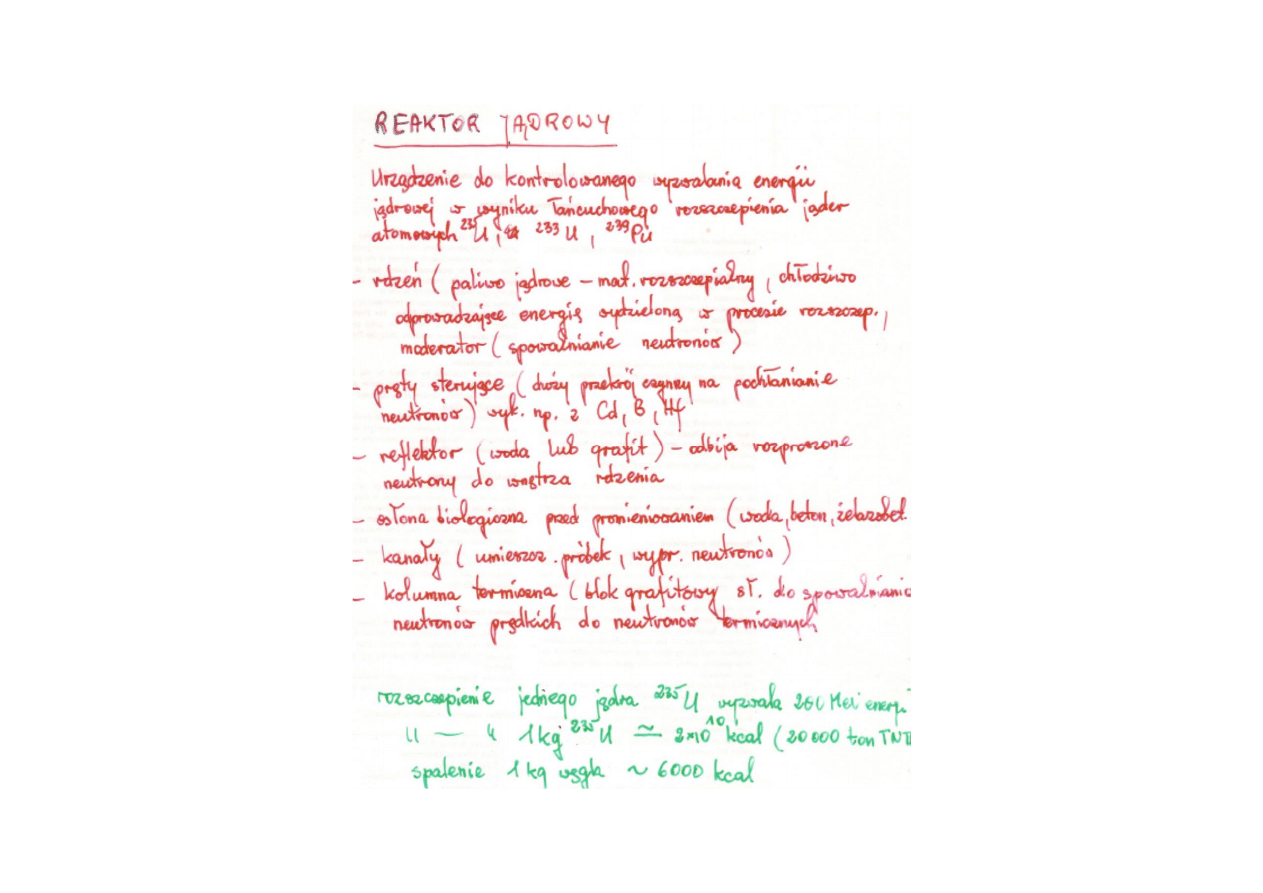 REAKTOR JĄDROWY
Urządzenie do kontrolowanego wyzwalania energii
jądrowej w wyniku łańcuchowego rozszczepienia jąder
atomowych ²³⁵U, ²³³U, ²³⁹Pu
- rdzeń ( paliwo jądrowe – mat. rozszczepialny, chłodziwo
odprowadzające energię wydzieloną w procesie rozszczep.,
moderator ( spowalnianie neutronów )
- pręty sterujące ( duży przekrój czynny na pochłanianie
neutronów ) wyk. np. z Cd, B, Hf
- reflektor ( woda lub grafit ) – odbija rozproszone
neutrony do wnętrza rdzenia
- osłona biologiczna przed promieniowaniem ( woda, beton, żelazobet.
- kanały ( umieszcz. próbek, wypr. neutronów )
- kolumna termiczna ( blok grafitowy sł. do spowalniania
neutronów prędkich do neutronów termicznych
rozszczepienie jednego jądra ²³⁵U wyzwala 200 MeV energi
11 — " 1 kg ²³⁵U ≃ 2×10¹⁰ kcal ( 20 000 ton TNT
spalenie 1 kg węgla ~ 6000 kcal